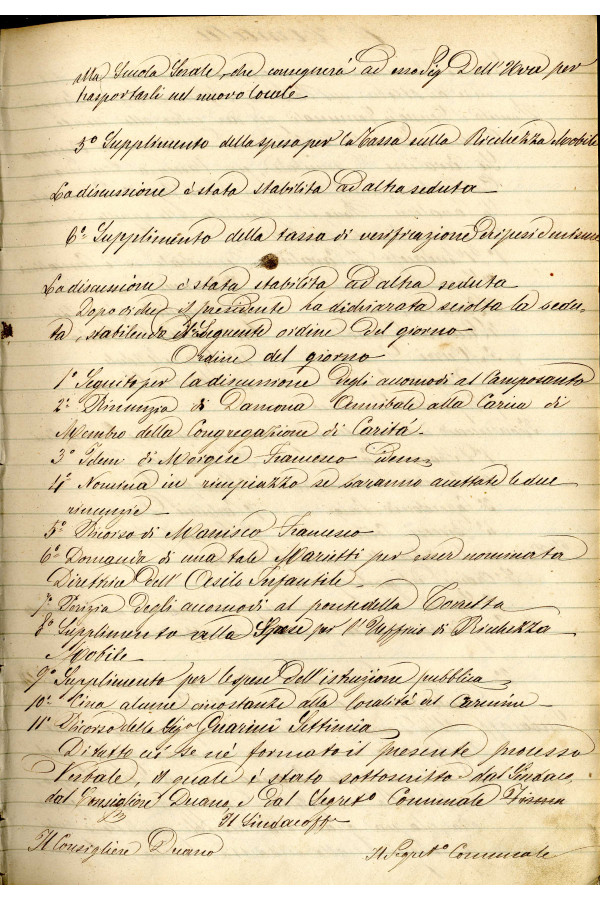 alla Scuola Serale, che consegnerà ad esso Sig. Dell'Uva per
trasportarli nel nuovo locale
5° Supplimento della spesa per la Tassa sulla Ricchezza Mobile
La discussione è stata stabilita ad altra seduta
6° Supplimento della tassa di verificazione di pesi e misure
La discussione è stata stabilita ad altra seduta
Dopo di che il presidente ha dichiarata sciolta la sedu-
ta, stabilendo il seguente ordine del giorno
Ordine del giorno
1° Seguito per la discussione degli accomodi al Camposanto
2° Rinunzia di Damona Annibale alla Carica di
Membro della Congregazione di Carità.
3° Idem di Morgese Francesco Idem
4° Nomina in rimpiazzo se saranno accettate le due
rinunzie
5° Ricorso di Manisco Francesco
6° Domanda di una tale Marietti per esser nominata
Direttrice dell'Asilo Infantile
7° Perizia degli accomodi al ponte della Torretta
8° Supplimento alla Spese per l'Ufficio di Ricchezza
Mobile
9° Supplimento per le spese dell'istruzione pubblica
10° Circa alcune circostanze alla località del Carmine
11° Ricorso della Sigª Guarini Settimia
Di tutto ciò se n'è formato il presente processo
Verbale, il quale è stato sottoscritto dal Sindaco,
dal Consigliere Durano, e dal Segretº Comunale
Il Sindaco ff
Il Consigliere Durano
Il Segretº Comunale